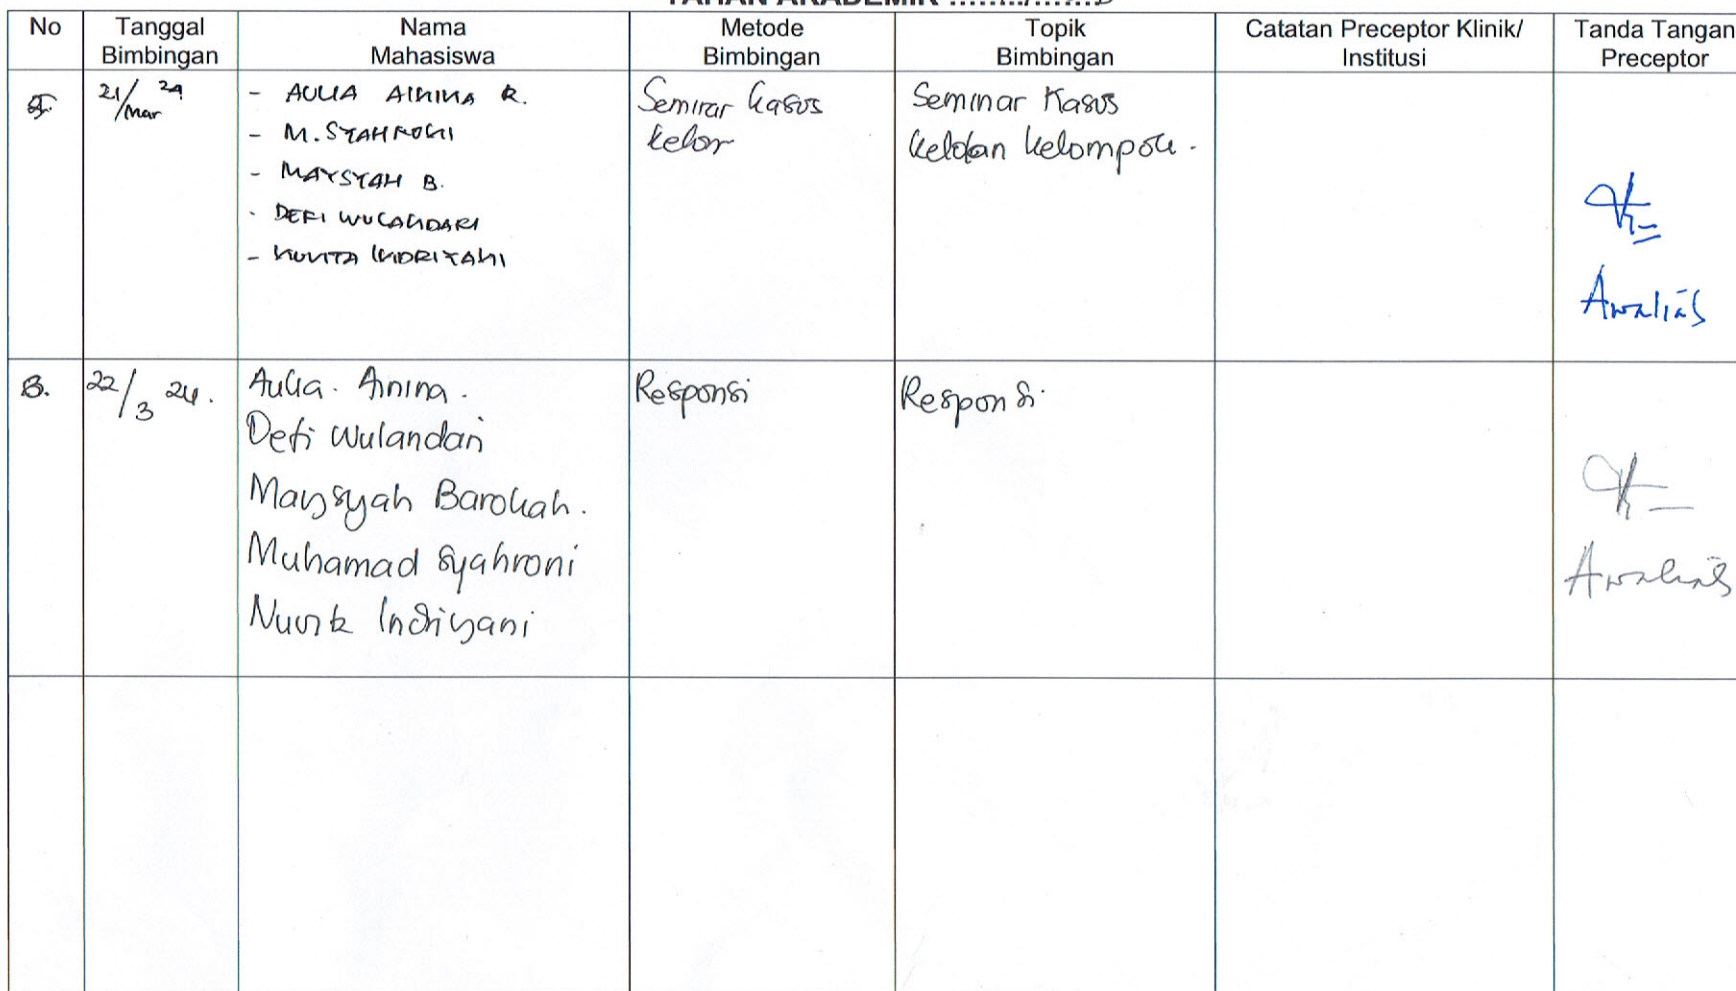 No Tanggal Bimbingan Nama Mahasiswa Metode Bimbingan Topik Bimbingan Catatan Preceptor Klinik/ Institusi Tanda Tangan Preceptor
21/Mar 24
- AULIA AININA R.
- M. SYAHRONI
- MAYSYAH B.
- DEFI WULANDARI
- NUVITA INDRIYANI
Seminar Kasus
Kelor
Seminar Kasus
Keldan Kelompok.
Awalias
8. 22/3 24.
Aulia. Anina.
Defi Wulandari
Maysyah Barokah.
Muhamad Syahroni
Nuvita Indriyani
Responsi
Responsi.
Awalias